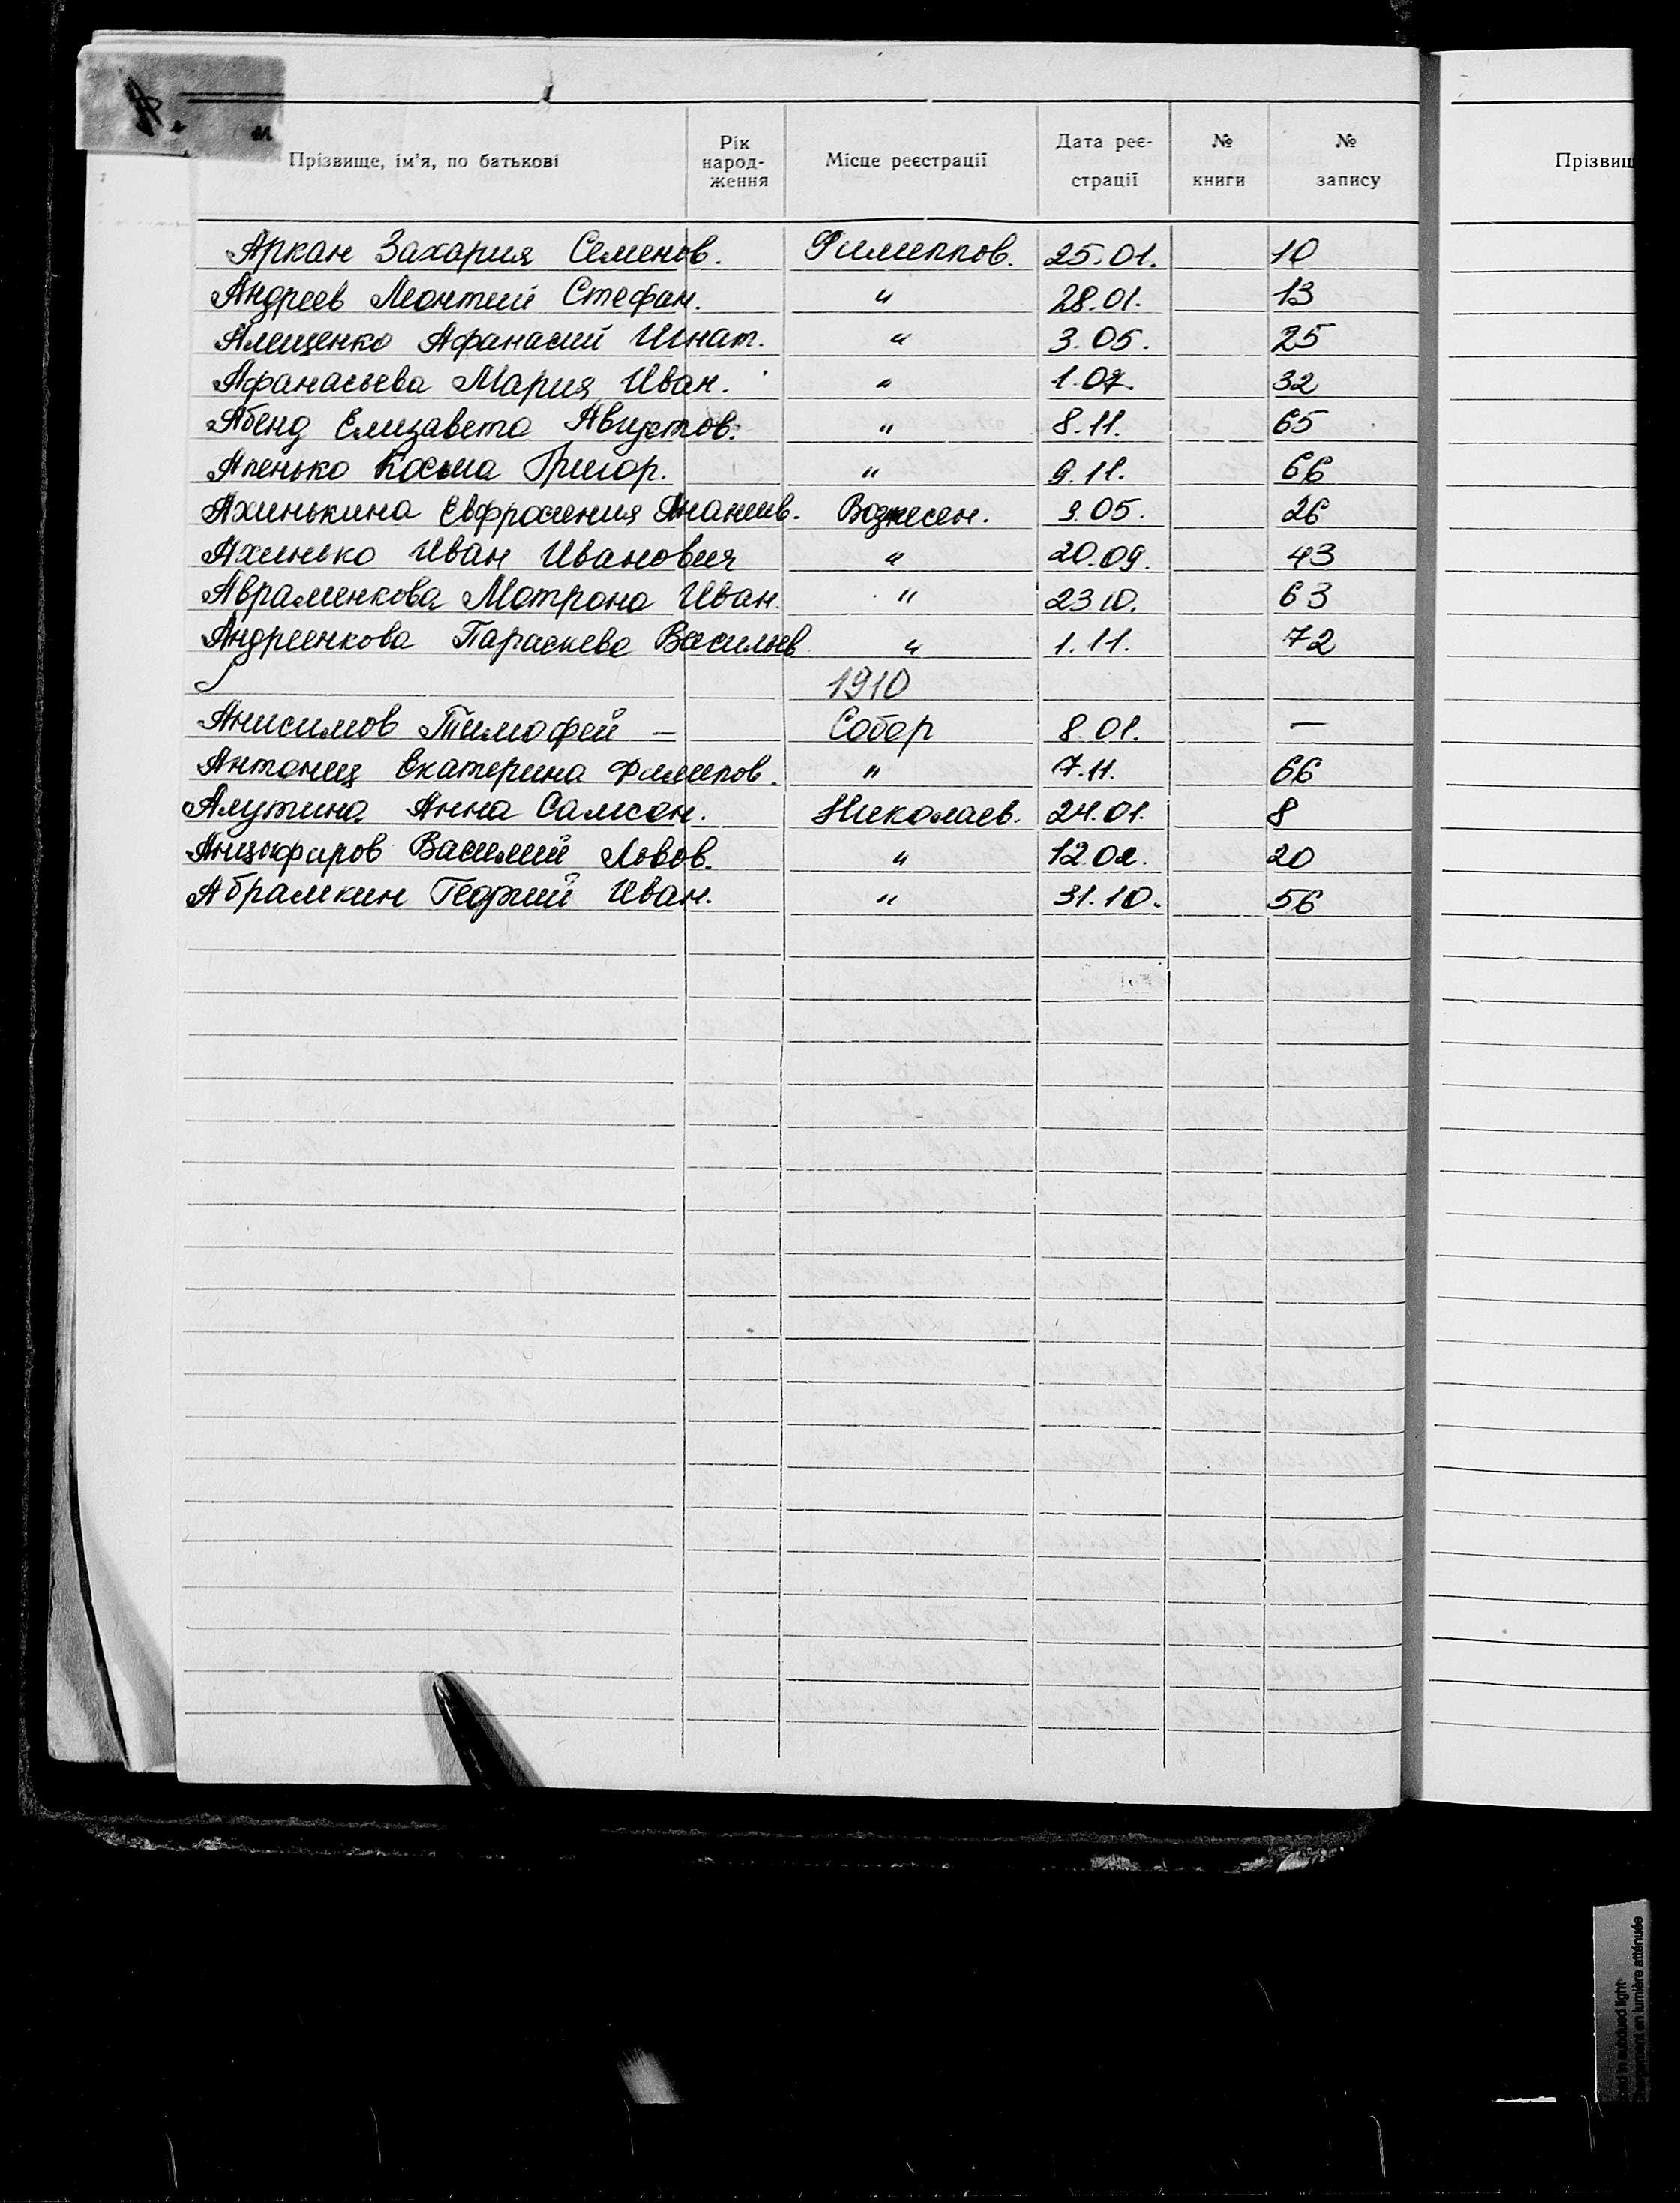 А.
Прізвище, ім'я, по батькові Рік народження Місце реєстрації Дата реєстрації № книги № запису
Прізвищ
Аркан Захария Семенов. Филиппов. 25.01. 10
Андреев Леонтий Стефан. " 28.01. 13
Алещенко Афанасий Игнат. " 3.05. 25
Афанасьева Мария Иван. " 1.07. 32
Абенд Елизавета Августов. " 8.11. 65
Апенько Косма Григор. " 9.11. 66
Ахинькина Евфросения Ананиев. Вознесен. 9.05. 26
Ахинько Иван Иванович " 20.09. 43
Авраменкова Матрона Иван. " 23 10. 63
Андреенкова Параскева Васильев " 1.11. 72
1910
Анисимов Тимофей — Собор 8.01. —
Антонец Екатерина Филипов. " 7.11. 66
Алутина Анна Самсон. Николаев. 24.01. 8
Василий Львов. " 12 02. 20
Абрамкин Георгий Иван. " 31.10. 56